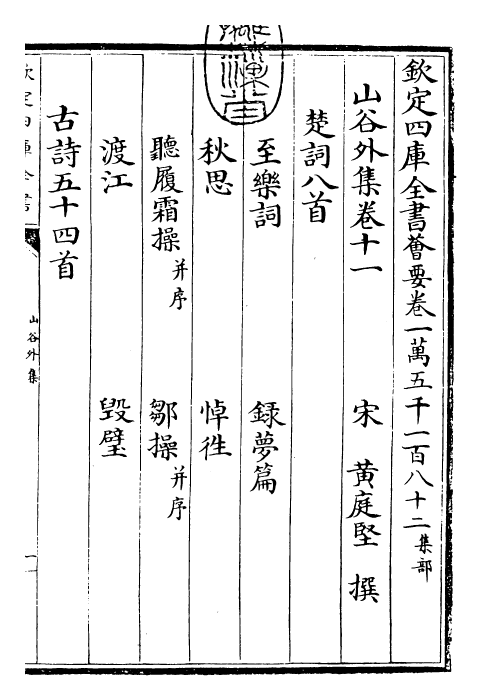 欽定四庫全書薈要卷一萬五千一百八十二集部
山谷外集卷十一　宋　黃庭堅　撰
楚詞八首
至樂詞　録夢篇
秋思　悼往
聽履霜操并序　鄒操并序
渡江　毀璧
古詩五十四首
欽定四庫全書
山谷外集
一